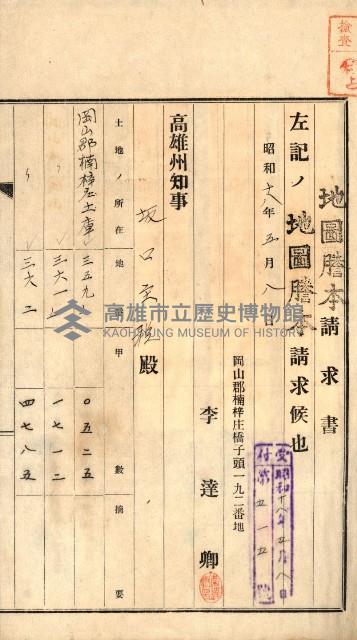 檢查
地圖謄本請求書
左記ノ地圖謄本請求候也
昭和十八年五月八日
岡山郡楠梓庄橋子頭一九二番地
李達卿
受付 昭和十八年五月八日
第五一五號
高雄州知事
坂口主税殿
土地ノ所在 地番 甲數 摘要
岡山郡楠梓庄土庫 三五九 〇五二五
〃 三六一 一七一二
〃 三六二 四七八五
高雄市立歷史博物館
KAOHSIUNG MUSEUM OF HISTORY